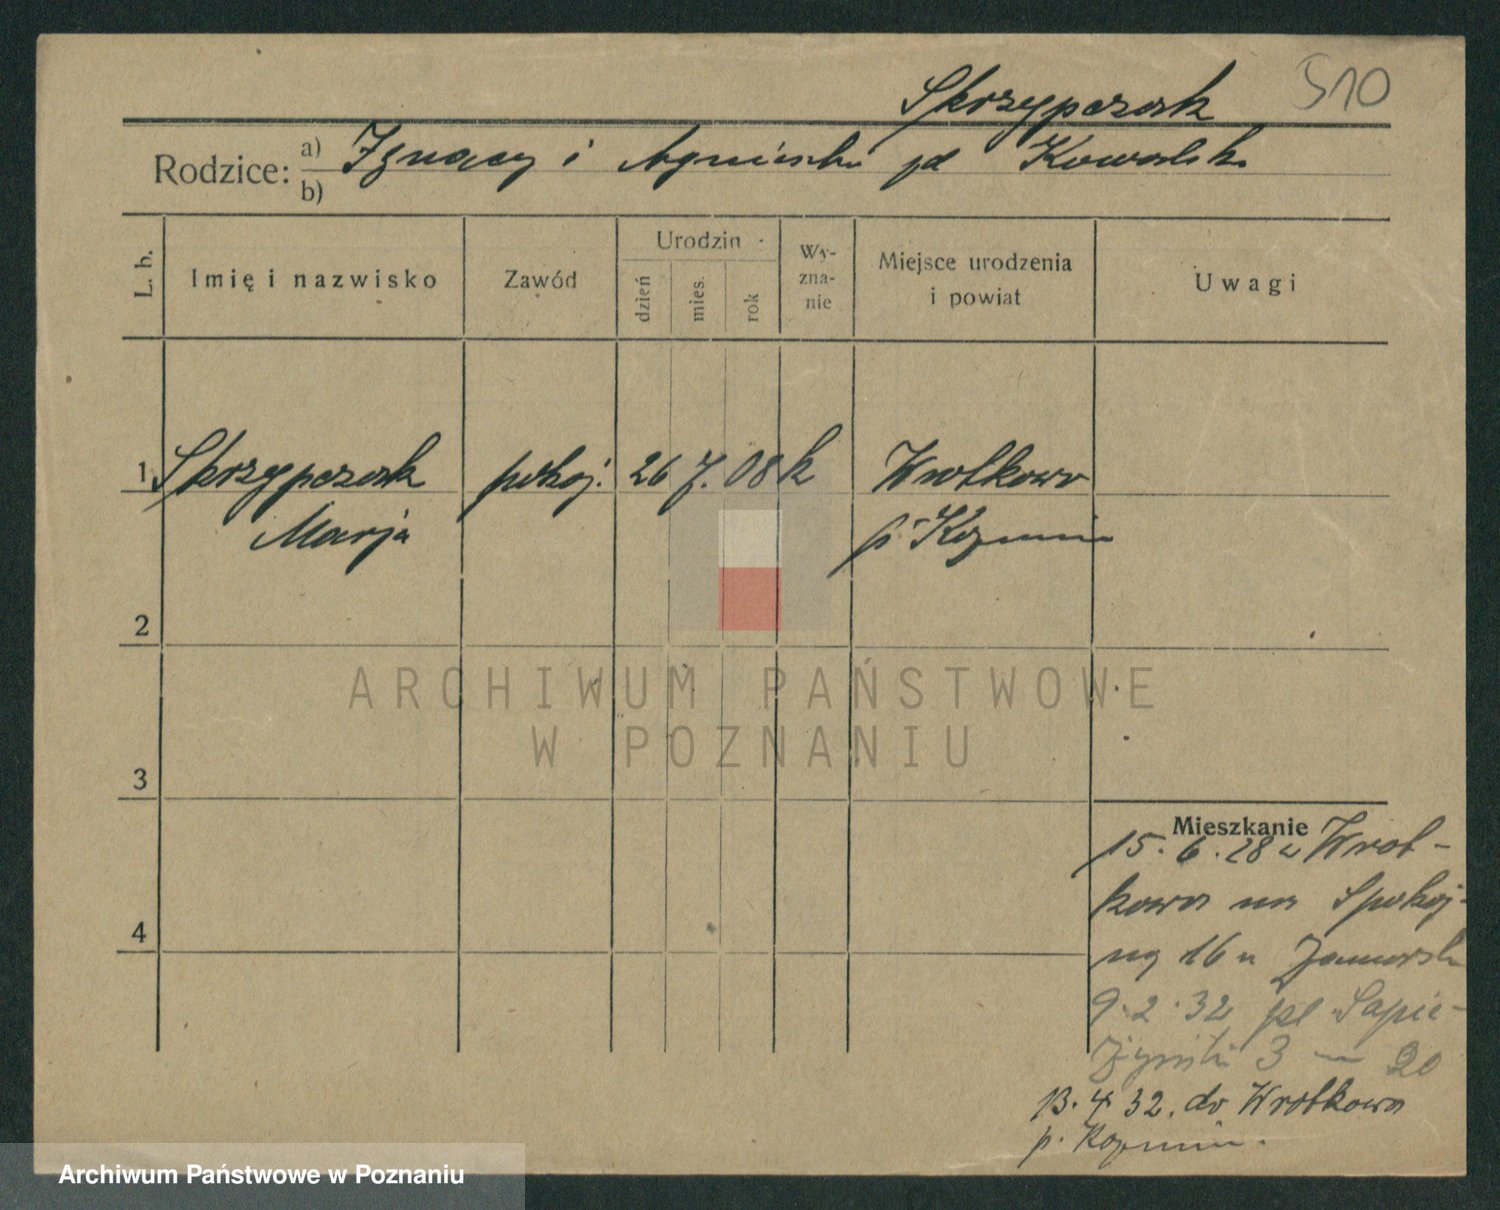 Skrzypczak 510
Rodzice: a) Ignacy i Agnieszka pd Kowalska
b)
L. b. Imię i nazwisko Zawód Urodzin dzień mies. rok Wy-zna-nie Miejsce urodzenia i powiat Uwagi
1 Skrzypczak pokoj. 26 7. 08 k Wrotkowo
Marja p. Kozmin
2
3
4
Mieszkanie
15. 6. 28 z Wrot-
kowa na Spokoj-
ną 16 u
9.2.32 pl. Sapie-
żyński 3 — 20
13. 4 32. do Wrotkowa
p. Kozmin.
ARCHIWUM PAŃSTWOWE
W POZNANIU
Archiwum Państwowe w Poznaniu